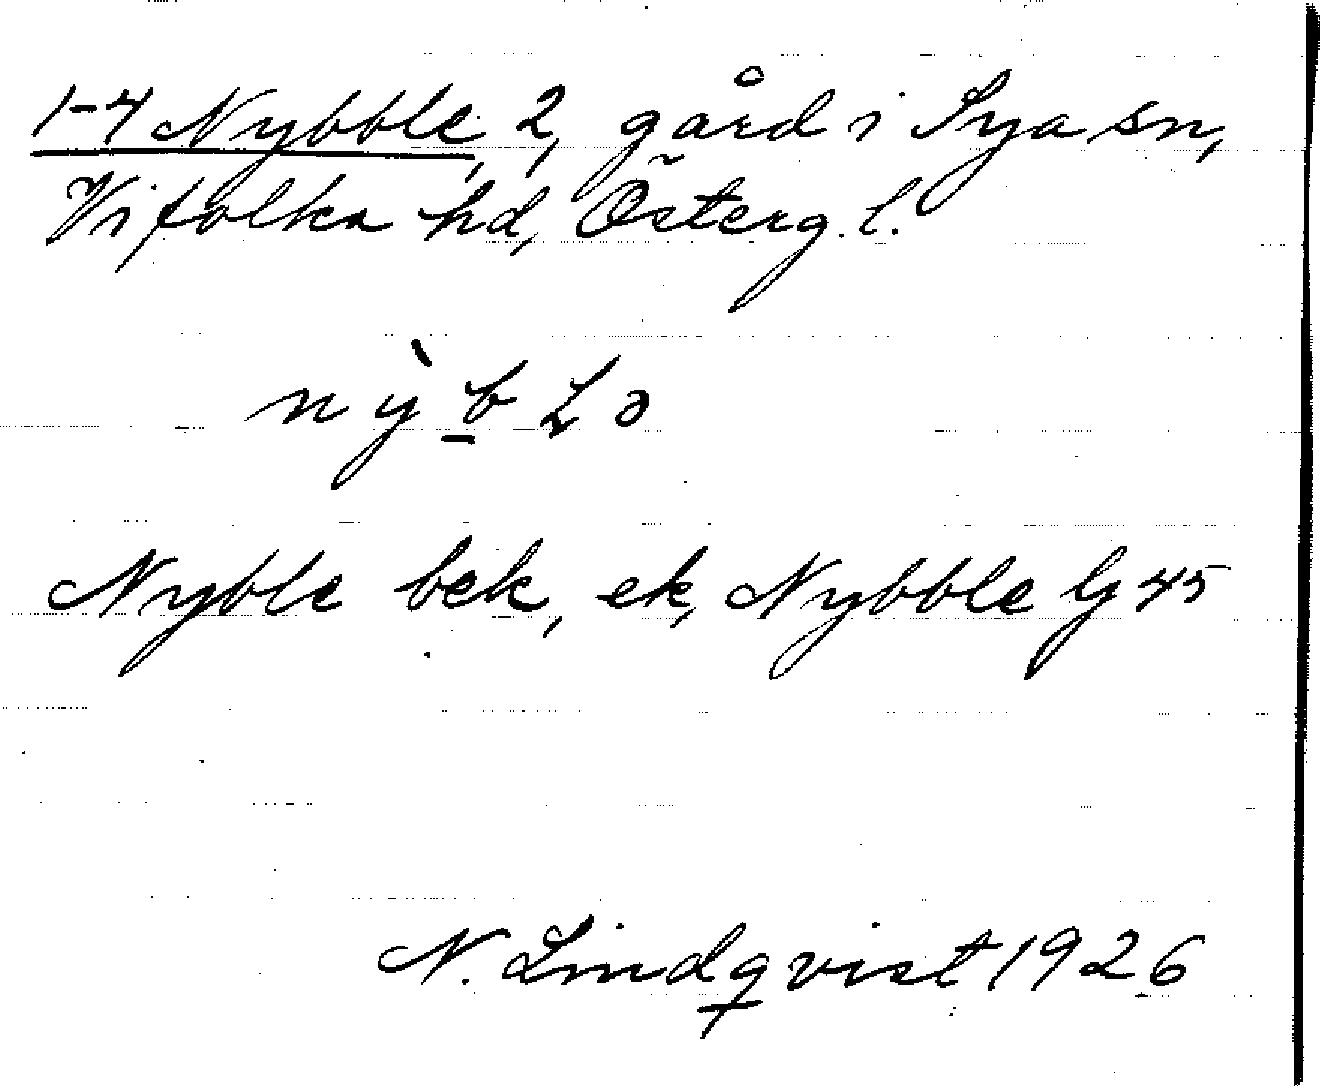 1-4 Nybble, 2, gård i Sya sn,
Vifolka hd, Österg. l.
nỳb̲Lə
Nyble bek, ek, Nybble lj 45
N. Lindqvist 1926